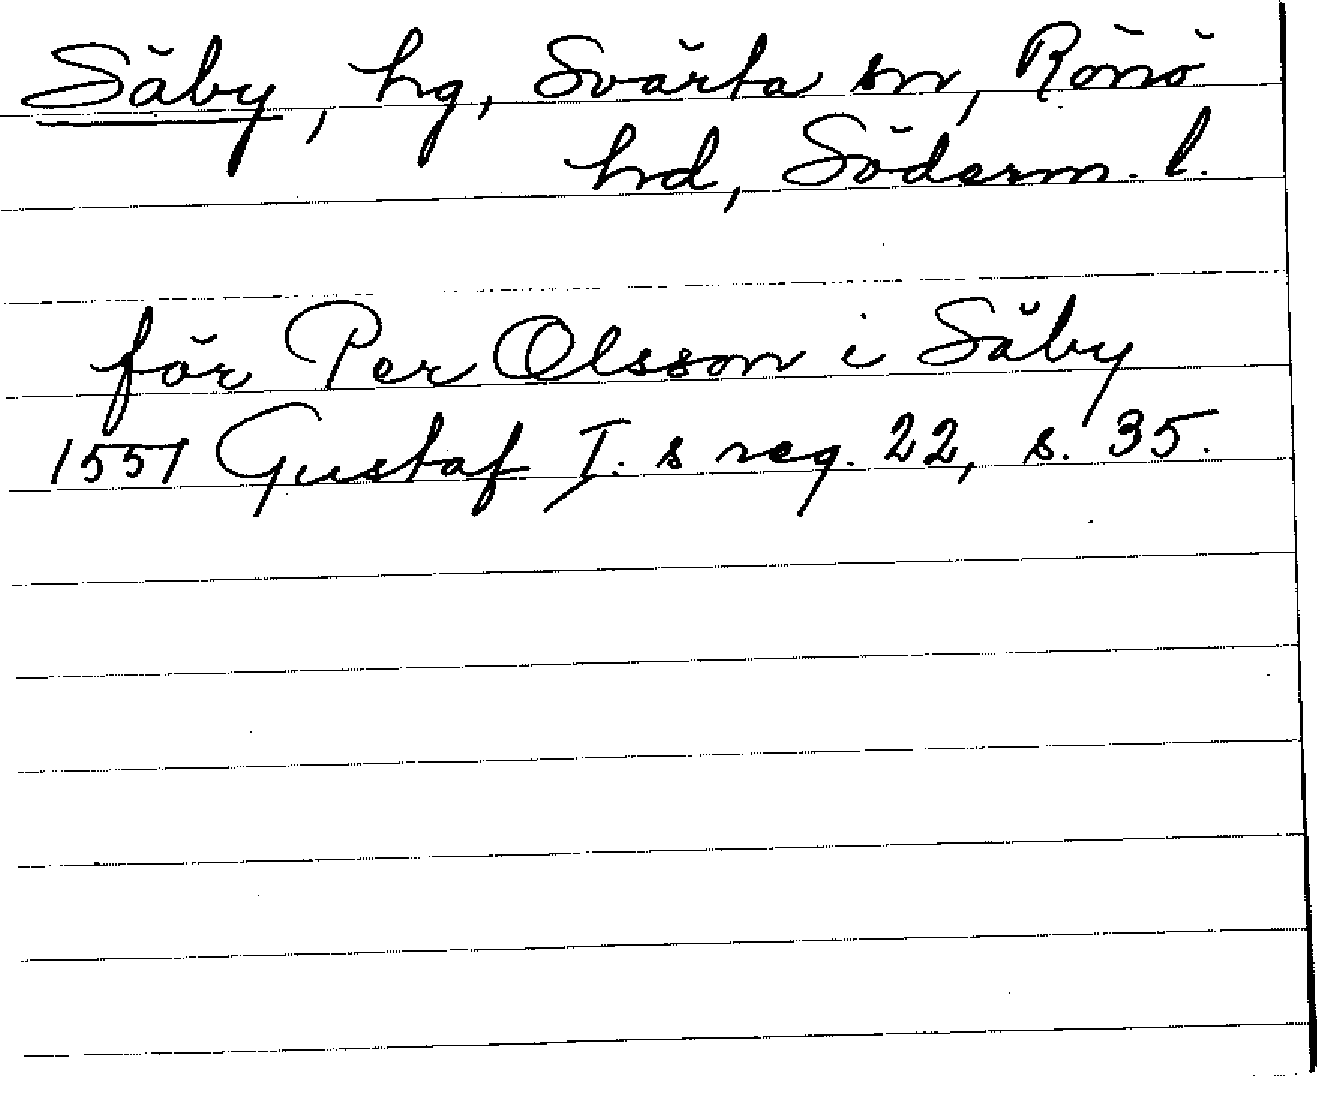 Säby, hg, Svärta sn, Rönö
hd, Söderm. l.
för Per Olsson i Säby
1551 Gustaf I.s reg. 22, s. 35.